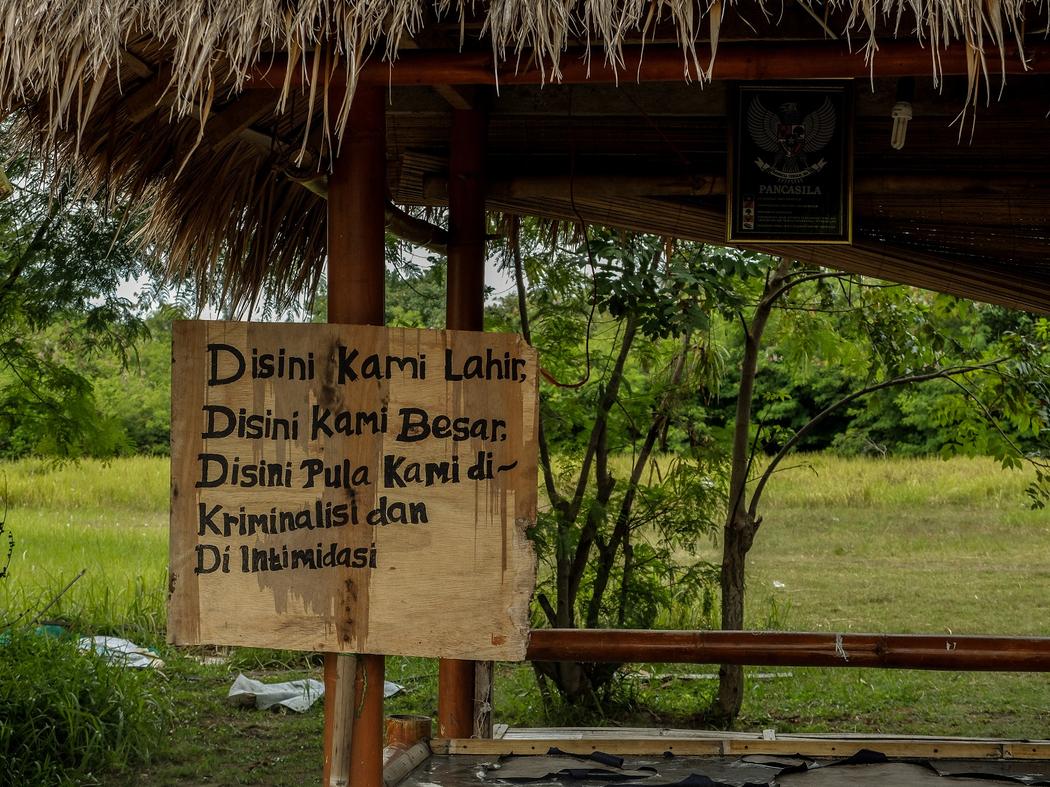 PANCASILA
Disini Kami Lahir,
Disini Kami Besar,
Disini Pula Kami di~
Kriminalisi dan
Di Intimidasi